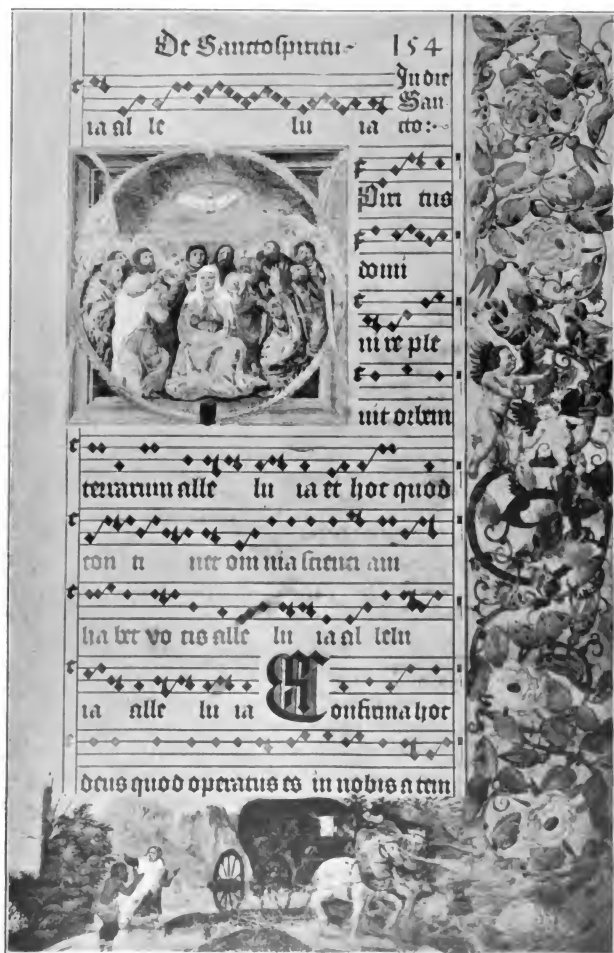 De Sancto spiritu 154
In die
San
cto:
ia al le lu ia
Piri tus
domi
ni re ple
uit orbem
terrarum alle lu ia et hoc quod
con ti net om nia scienci am
ha bet vo cis alle lu ia al lelu
ia alle lu ia Confirma hoc
deus quod operatus es in nobis a tem